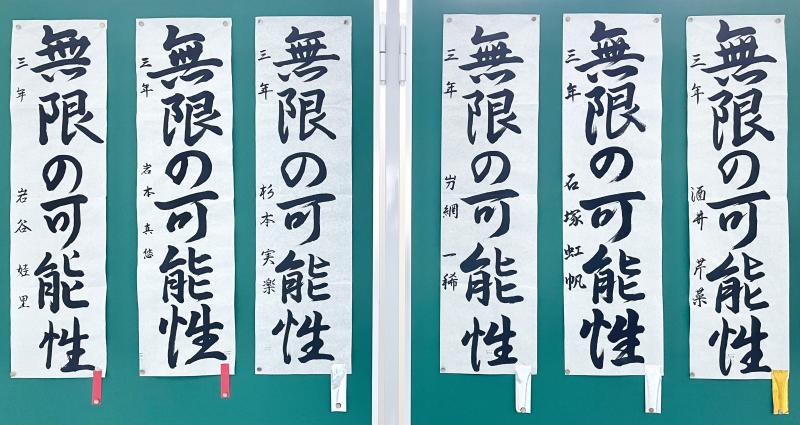 無限の可能性
三年 酒井 芹菜
無限の可能性
三年 石塚 虹帆
無限の可能性
三年 網 一稀
無限の可能性
三年 杉本 実楽
無限の可能性
三年 岩本 真悠
無限の可能性
三年 岩谷 娃里